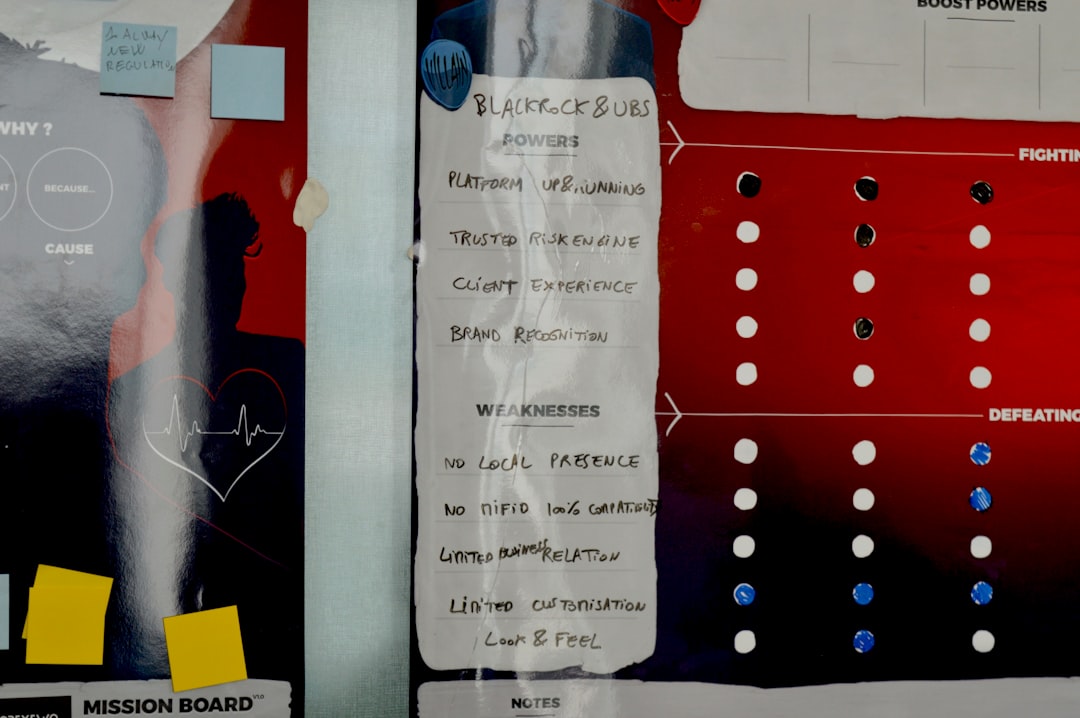 BOOST POWERS
NEW
REGULATIO
VILLAIN
BLACKROCK & UBS
WHY ?
NT
BECAUSE...
CAUSE
POWERS
FIGHTIN
PLATFORM UP & RUNNING
TRUSTED RISK ENGINE
CLIENT EXPERIENCE
BRAND RECOGNITION
WEAKNESSES
DEFEATING
NO LOCAL PRESENCE
NO MIFID 100%
LIMITED BUSINESS RELATION
LIMITED CUSTOMISATION
LOOK & FEEL
MISSION BOARD V1.0
NOTES